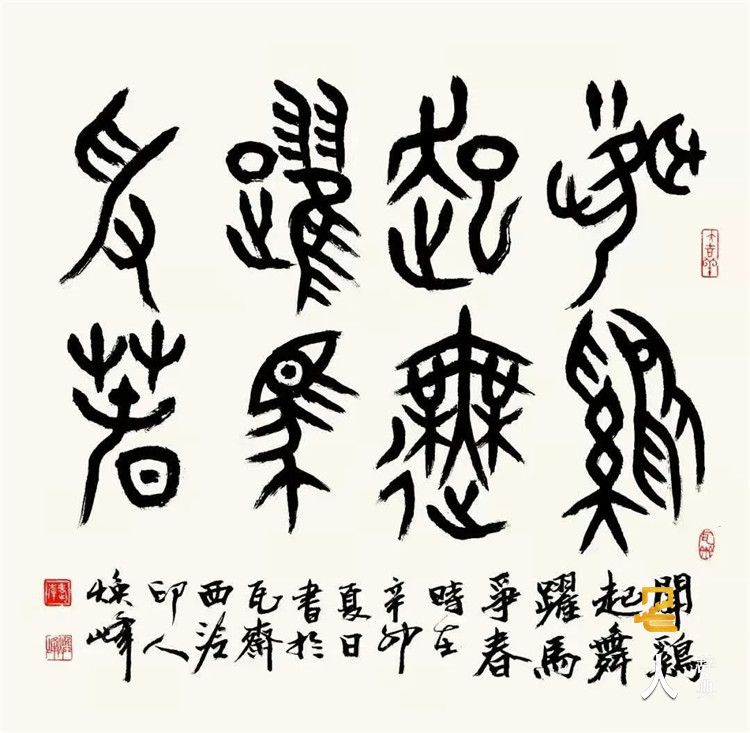 聞鷄
起舞
躍馬
爭春
聞鷄
起舞
躍馬
爭春
時在
辛卯
夏日
書於
瓦齋
西泠
印人
煥峰